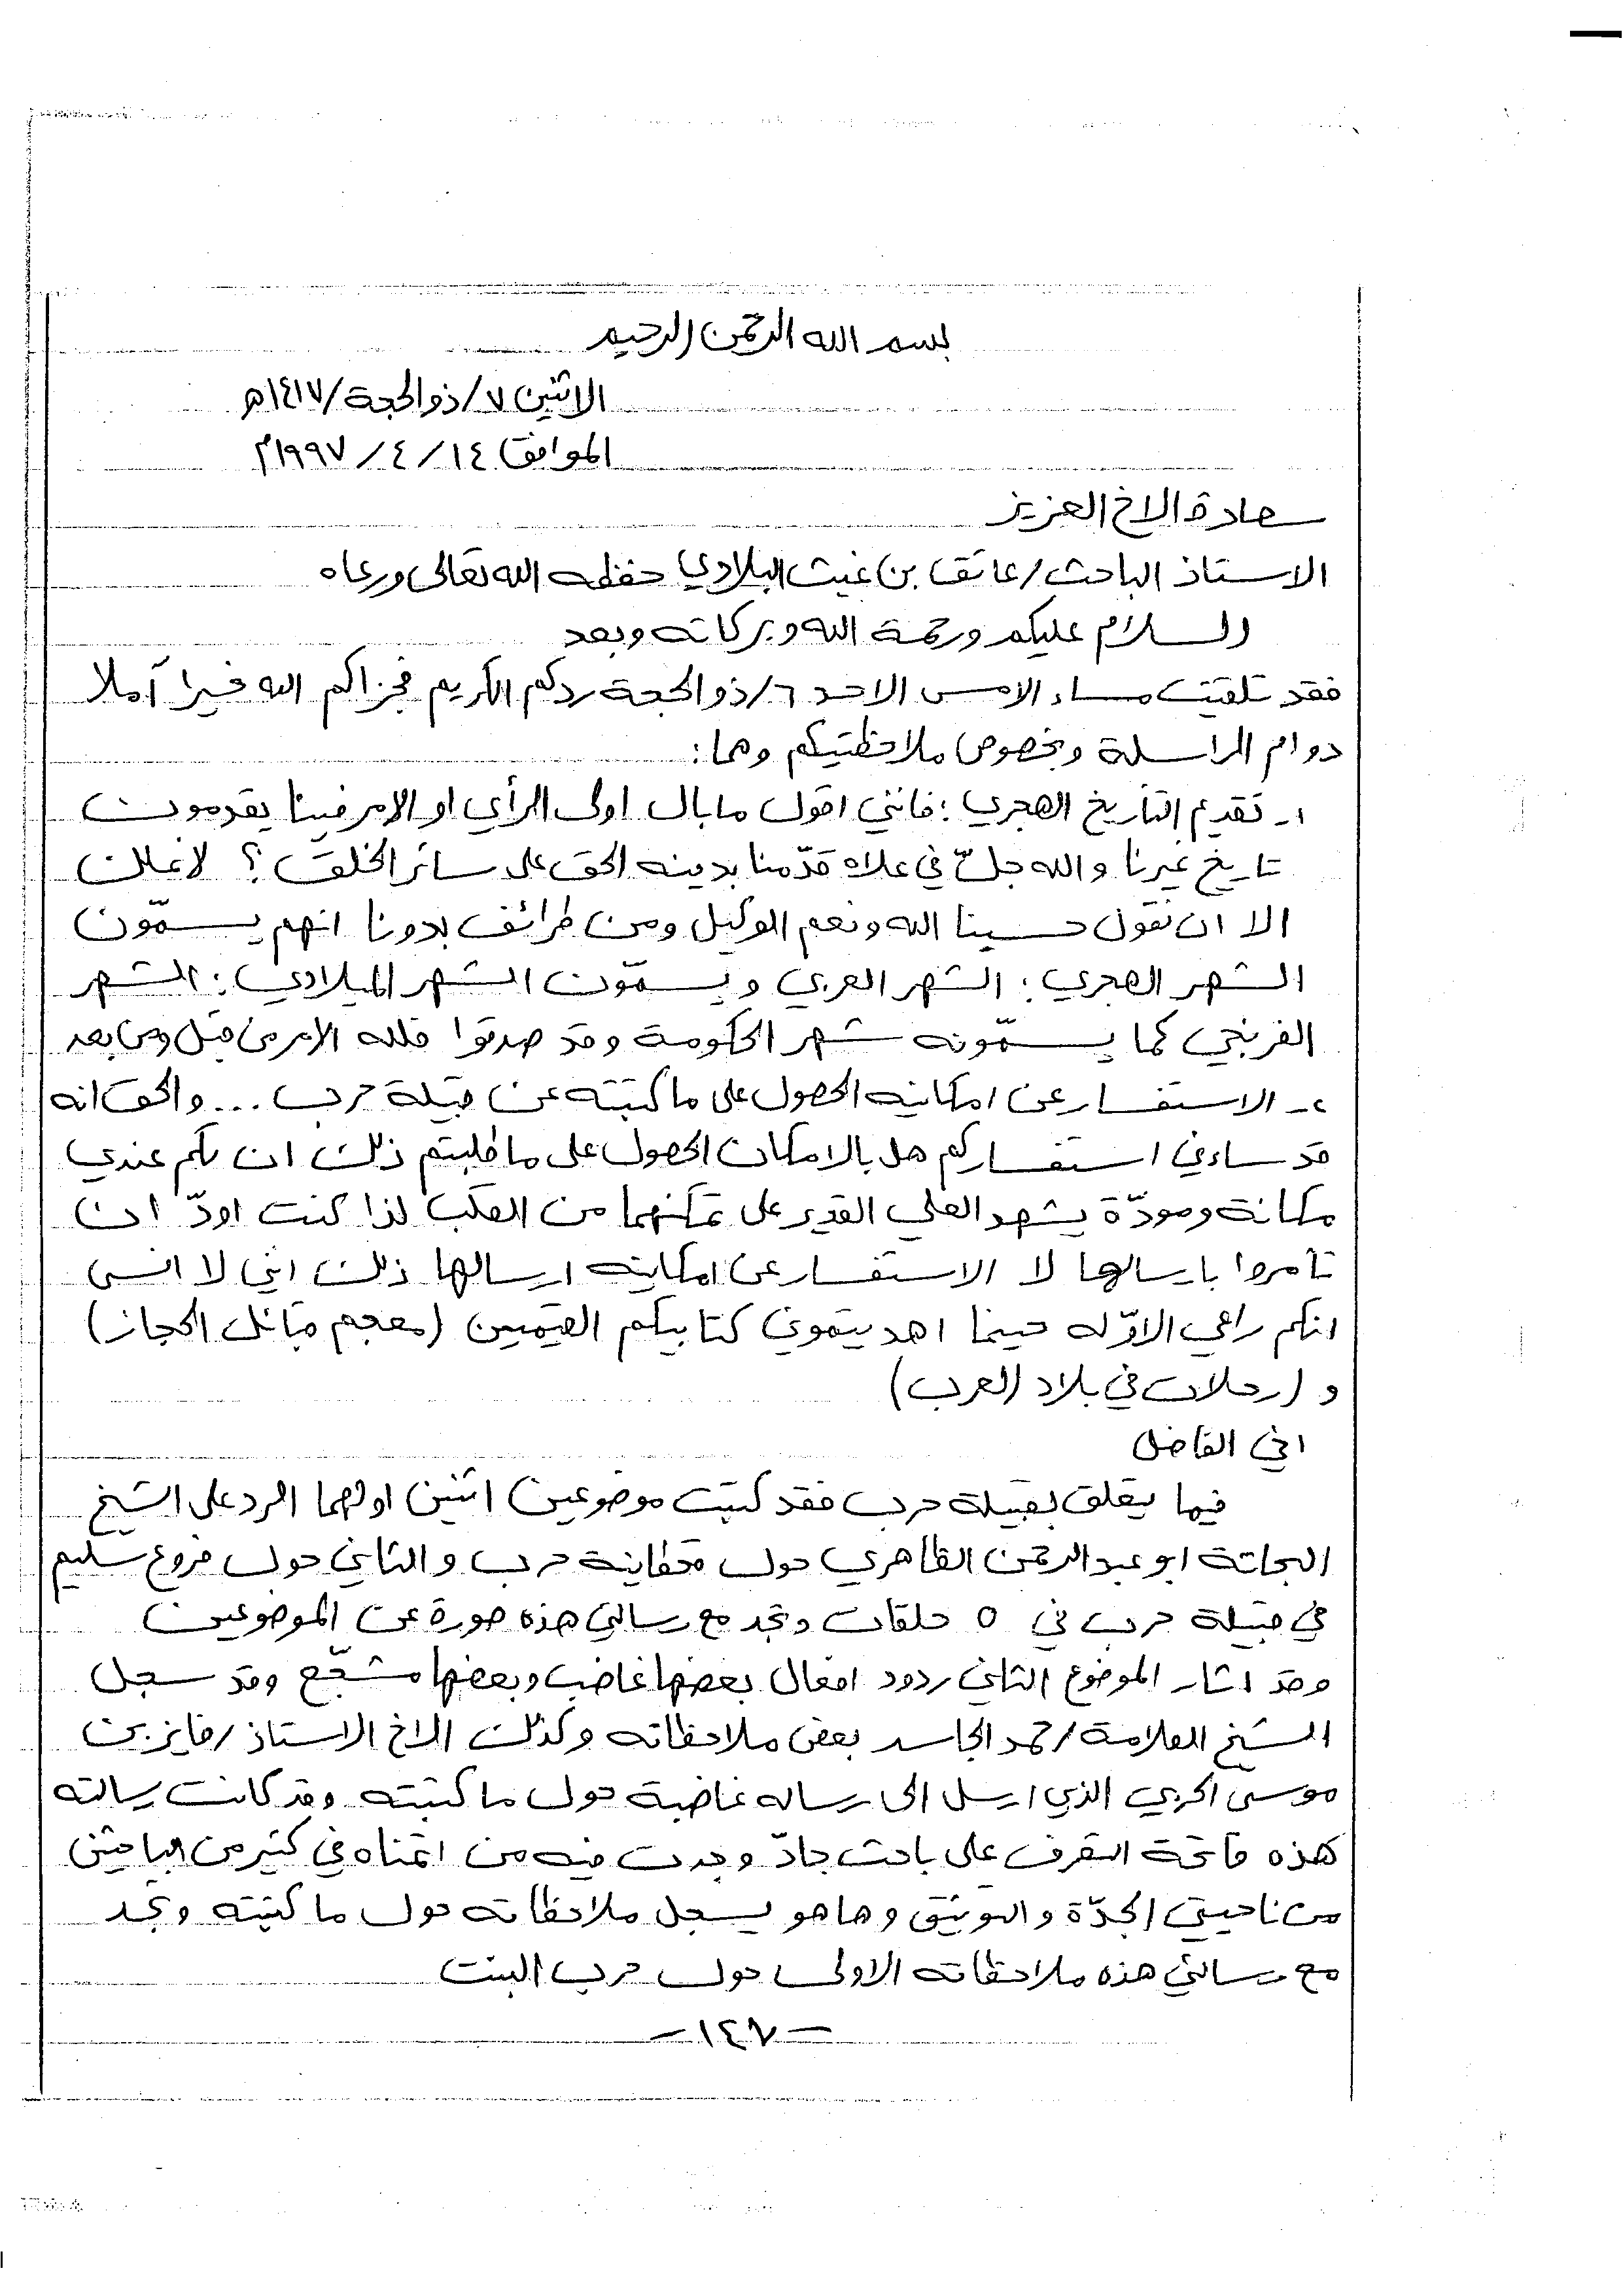 بسم الله الرحمن الرحيم
الاثنين ٧/ذوالحجة/١٤١٧هـ
الموافق ١٤/٤/١٩٩٧م
سعادة الاخ العزيز
الاستاذ الباحث/عاتق بن غيث البلادي حفظه الله تعالى ورعاه
السلام عليكم ورحمة الله وبركاته وبعد
فقد تلقيت مساء الامس الاحد ٦/ذوالحجة ردكم الكريم فجزاكم الله خيرا آملا
دوام المراسلة وبخصوص ملاحظتيكم وهما:
١- تقديم التأريخ الهجري: فانني اقول ما بال اولى الرأي او الامر فينا يقدمون
تاريخ غيرنا والله جلّ في علاه قدّمنا بدينه الحق على سائر الخلق؟ لا نملك
الا ان نقول حسبنا الله ونعم الوكيل ومن طرائف بدونا انهم يسمّون
الشهر الهجري: الشهر العربي ويسمّون الشهر الميلادي: الشهر
الفرنجي كما يسمّونه شهر الحكومة وقد صدقوا فلله الامر من قبل ومن بعد
٢- الاستفسار عن امكانيه الحصول على ما كتبته عن قبيلة حرب ... والحق انه
قد ساءني استفساركم هل بالامكان الحصول على ما طلبتم ذلك ان لكم عندي
مكانة ومودّة يشهد العلي القدير على تمكنهما من القلب لذا كنت اودّ ان
تأمروا بارسالها لا الاستفسار عن امكانيه ارسالها ذلك اني لا انسى
انكم راعي الاوّله حينما اهديتموني كتابيكم القيمين (معجم قبائل الحجاز)
و (رحلات في بلاد العرب)
اخي الفاضل
فيما يتعلق بقبيلة حرب فقد كتبت موضوعين اثنين اولهما الرد على الشيخ
البحاثة ابو عبدالرحمن الظاهري حول قحطانية حرب والثاني حول فروع سليم
في قبيلة حرب في ٥ حلقات وتجد مع رسالتي هذه صورة عن الموضوعين
وقد اثار الموضوع الثاني ردود افعال بعضها غاضب وبعضها مشجّع وقد سجل
الشيخ العلامة/حمد الجاسر بعض ملاحظاته وكذلك الاخ الاستاذ/فايز بن
موسى الحربي الذي ارسل الى رساله غاضبة حول ما كتبته وقد كانت رسالته
هذه فاتحة التعرف على باحث جادّ وجدت فيه من اتمناه في كثير من الباحثين
من ناحيتي الجدّة والتوثيق وها هو يسجل ملاحظاته حول ما كتبته وتجد
مع رسالتي هذه ملاحظاته الاولى حول حرب البنت
-١٤٧-